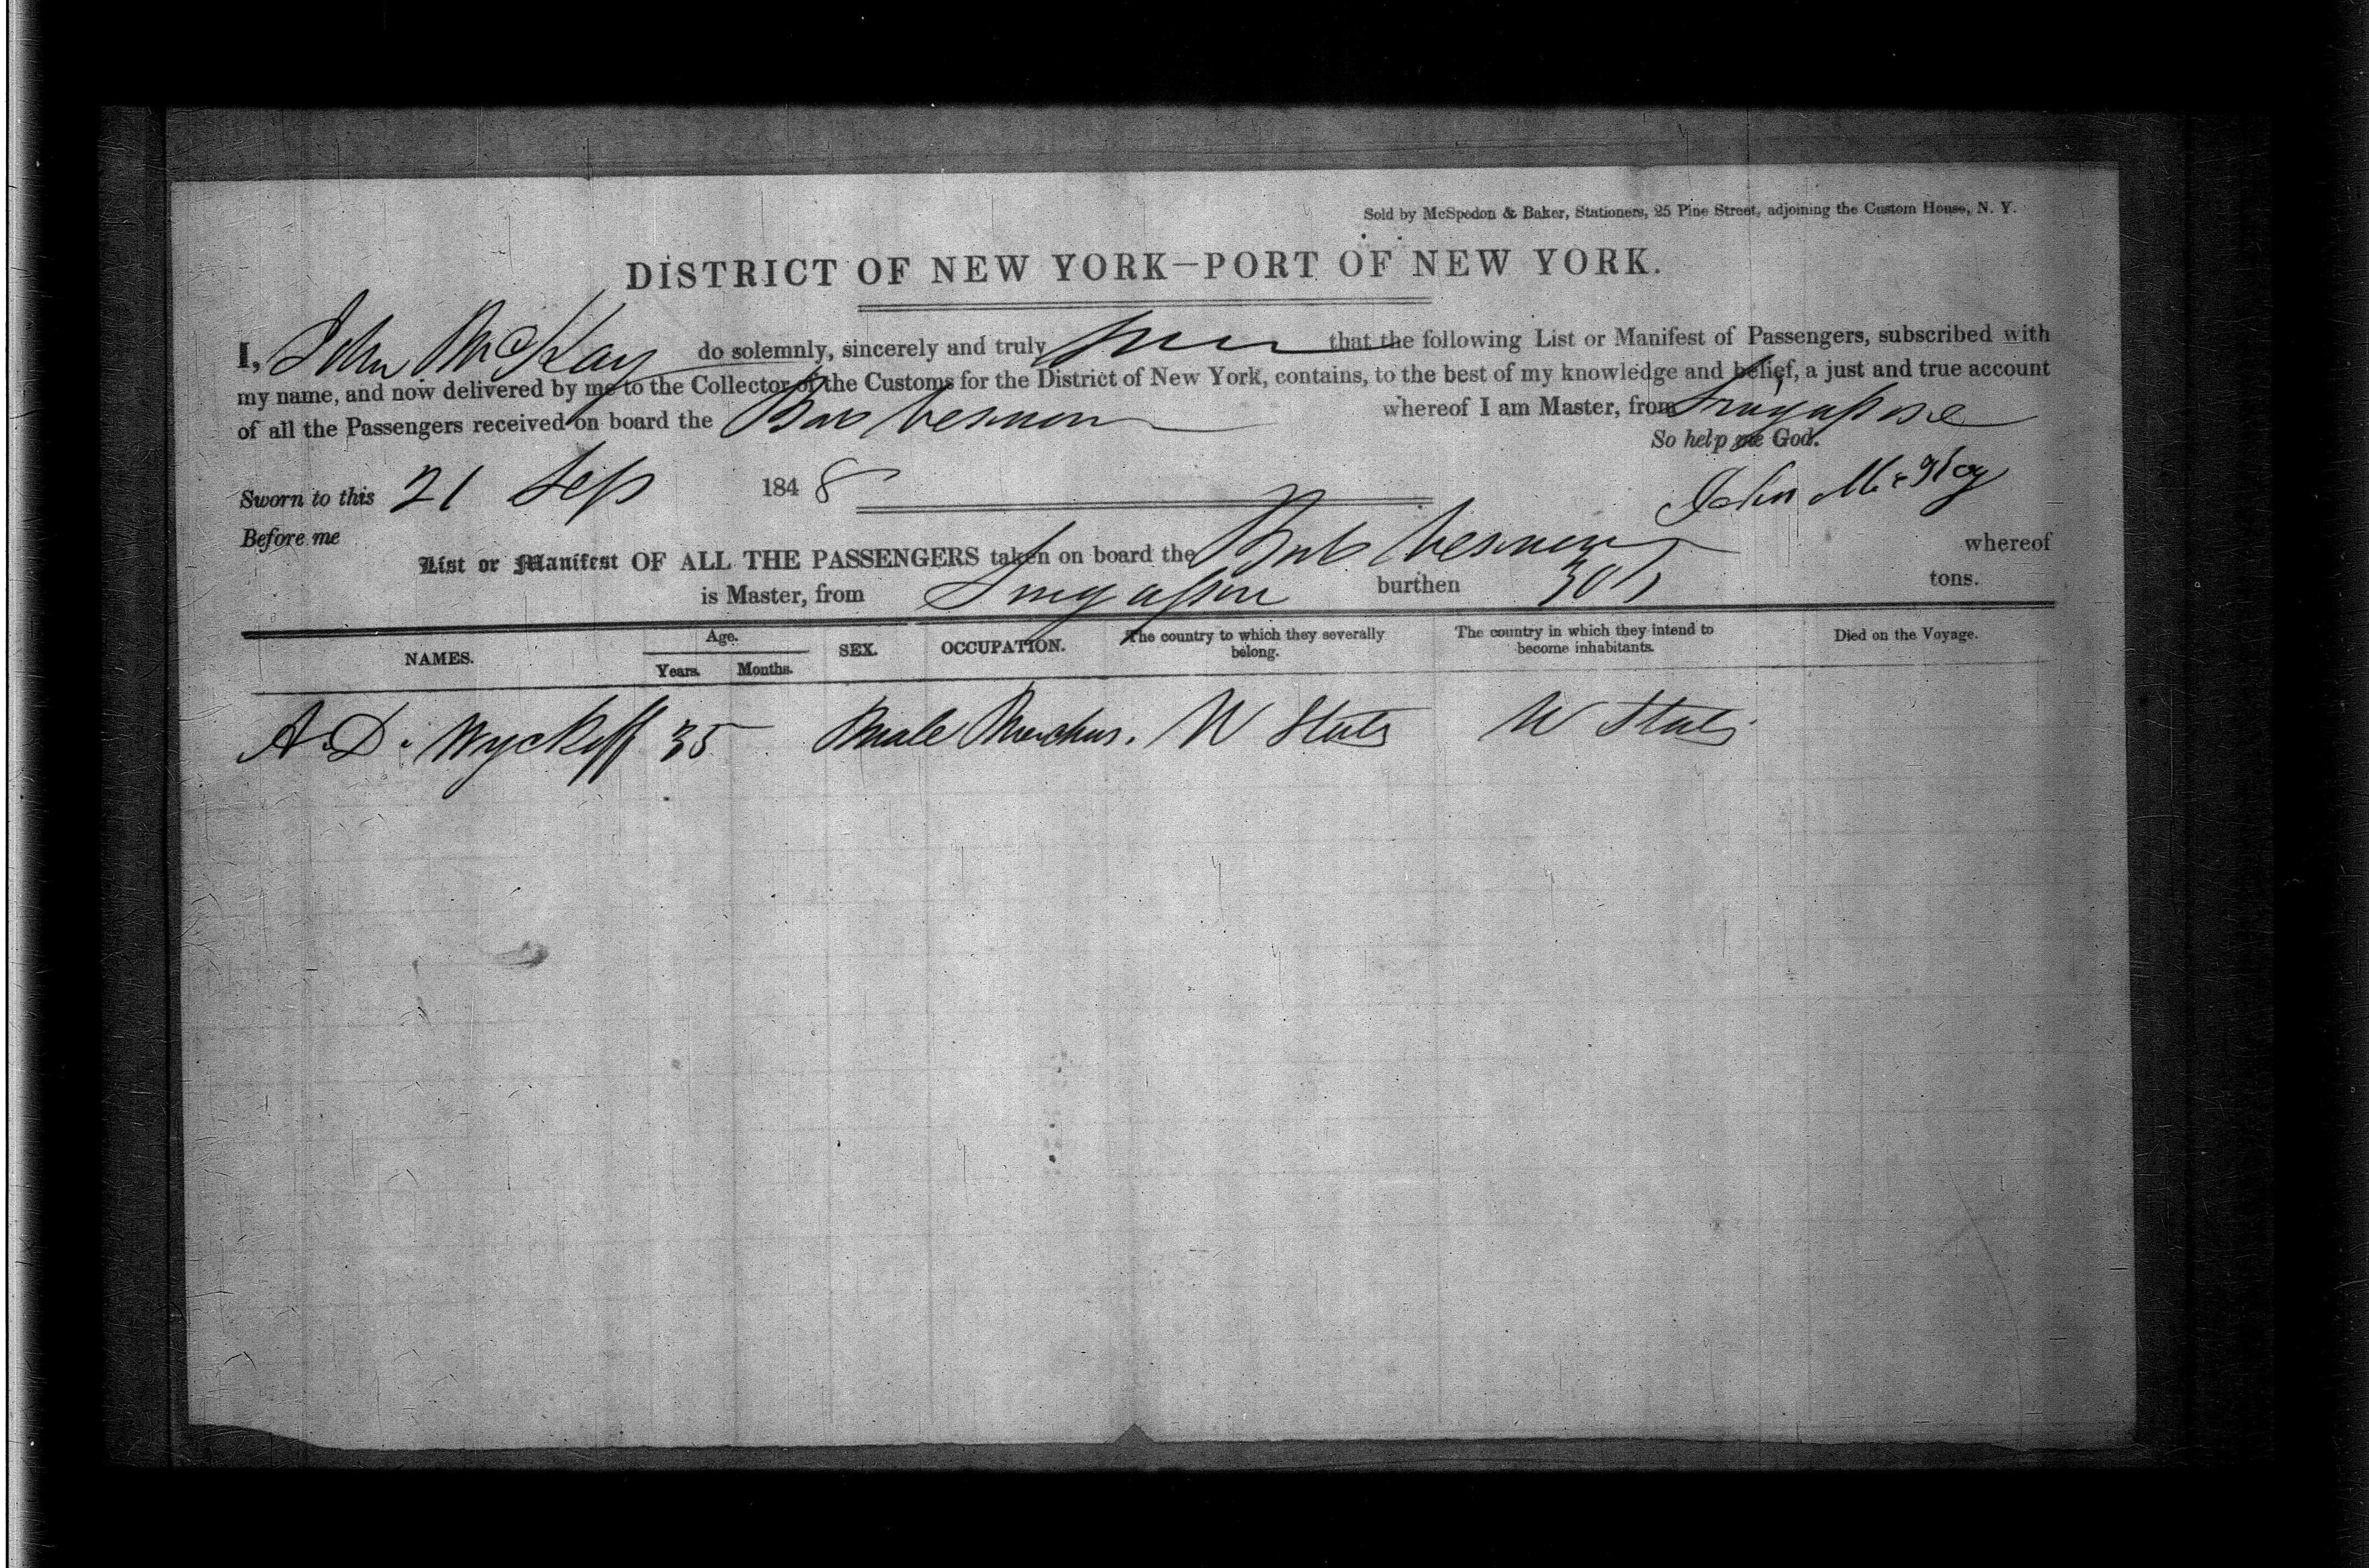 Sold by McSpedon & Baker, Stationers, 25 Pine Street, adjoining the Custom House, N. Y.
DISTRICT OF NEW YORK—PORT OF NEW YORK.
I, John McKay do solemnly, sincerely and truly that the following List or Manifest of Passengers, subscribed with
my name, and now delivered by me to the Collector of the Customs for the District of New York, contains, to the best of my knowledge and belief, a just and true account
of all the Passengers received on board the Vernon whereof I am Master, from Singapore
So help me God.
Sworn to this 21 Sep 1848 John McKay
Before me
List or Manifest OF ALL THE PASSENGERS taken on board the Vernon whereof
is Master, from Singapore burthen tons.
NAMES. Age. Years. Months. SEX. OCCUPATION. The country to which they severally belong. The country in which they intend to become inhabitants. Died on the Voyage.
A. D. Wyckoff 35 Male U States U States